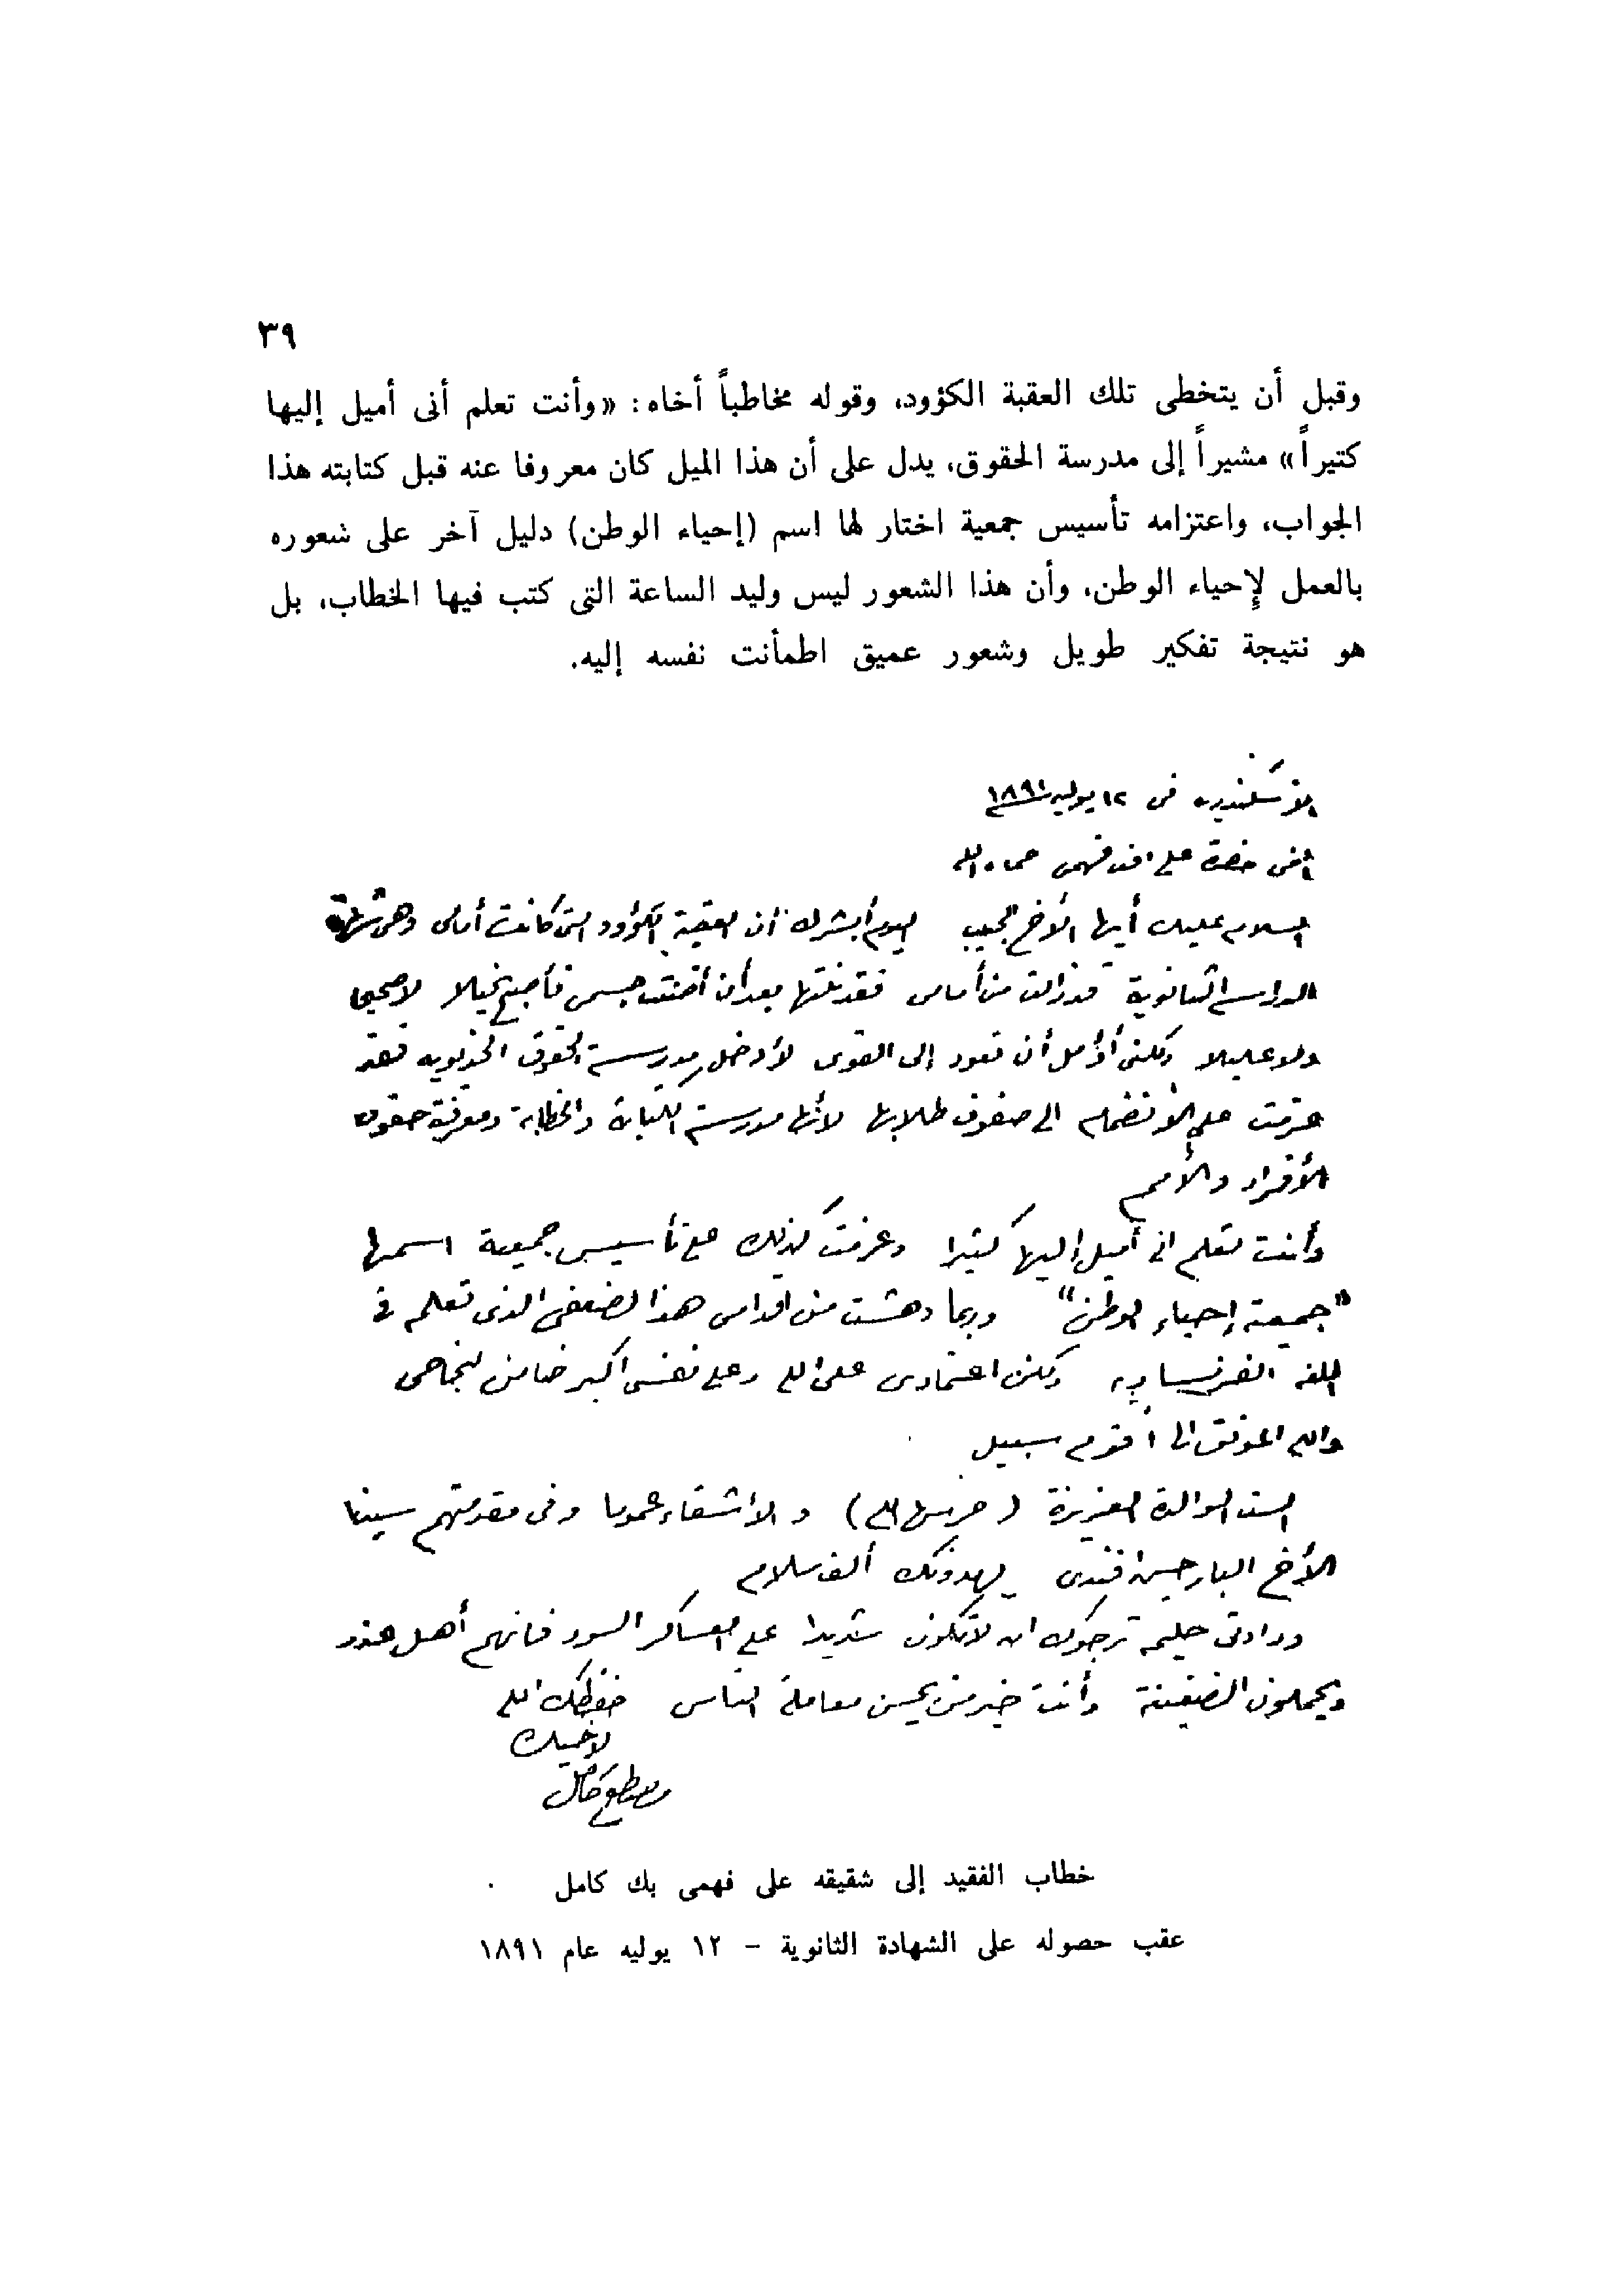 ٣٩
وقبل أن يتخطى تلك العقبة الكؤود، وقوله مخاطباً أخاه: «وأنت تعلم أنى أميل إليها
كثيراً» مشيراً إلى مدرسة الحقوق، يدل على أن هذا الميل كان معروفا عنه قبل كتابته هذا
الجواب، واعتزامه تأسيس جمعية اختار لها اسم (إحياء الوطن) دليل آخر على شعوره
بالعمل لإحياء الوطن، وأن هذا الشعور ليس وليد الساعة التى كتب فيها الخطاب، بل
هو نتيجة تفكير طويل وشعور عميق اطمأنت نفسه إليه.
الاسكندريه فى ١٢ يوليه ١٨٩١
أخى حضرة على افندى فهمى حماه الله
السلام عليك أيها الأخ الحبيب اليوم أبشرك أن العقبة الكؤود التى كانت أمامى وهى شهادة
الدراسة الثانوية قد زالت من أمامى فقد نلتها بعد أن أضنت جسمى فأصبح نحيلا لا صحيحا
ولا عليلا ولكنى أؤمل أن تعود إلى القوى لأدخل مدرسة الحقوق الخديويه فقد
عزمت على الأنضمام الى صفوف طلابها لأنها مدرسة الكتابة والخطابة ومعرفة حقوق
الأفراد والأمم
وأنت تعلم انى أميل إليها كثيرا وعزمت كذلك على تأسيس جمعية اسمها
"جمعية إحياء الوطن" وربما دهشت من اقدامى هذا لضعفى الذى تعلم فى
اللغه الفرنساويه ولكن اعتمادى على الله وعلى نفسى اكبر ضامن لنجاحى
والله الموفق الى أقوم سبيل
الست الوالدة العزيزة (حرسها الله) والأشقاء عموما وفى مقدمتهم سيدنا
الأخ البار حسين افندى يهدونك ألف سلام
ودادتى حليمه ترجوك ان لا تكون شديدا على العساكر السود فانهم أهل غدر
ويحملون الضغينة وأنت خير من يحسن معاملة الناس حفظك الله
لأخيك
مصطفى كامل
خطاب الفقيد إلى شقيقه على فهمى بك كامل
عقب حصوله على الشهادة الثانوية - ١٢ يوليه عام ١٨٩١